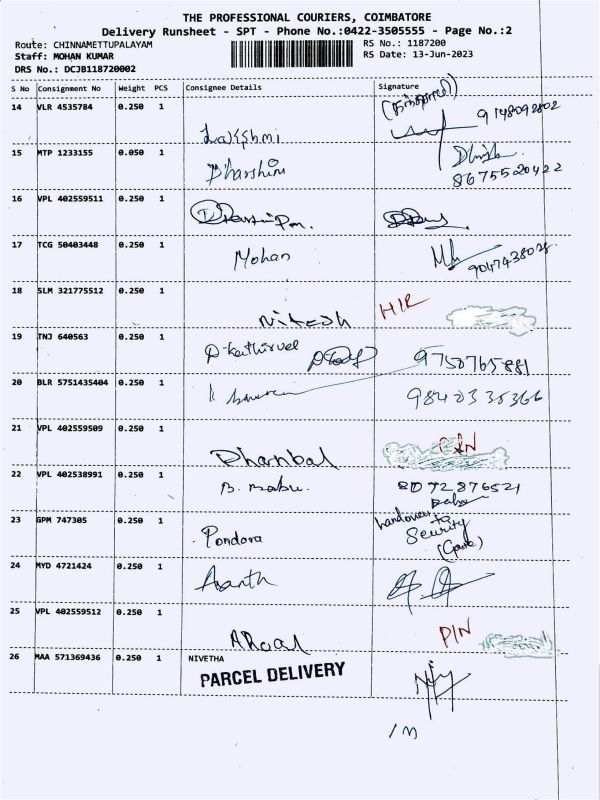 THE PROFESSIONAL COURIERS, COIMBATORE
Delivery Runsheet - SPT - Phone No.:0422-3505555 - Page No.:2
Route: CHINNAMETTUPALAYAM
Staff: MOHAN KUMAR
DRS No.: DCJB118720002
RS No.: 1187200
RS Date: 13-Jun-2023
S No Consignment No Weight PCS Consignee Details Signature
14 VLR 4535784 0.250 1
Lakshmi
9148092802
15 MTP 1233155 0.050 1
Dharshini
8675520422
16 VPL 402559511 0.250 1
17 TCG 50403448 0.250 1
Mohan
18 SLM 321775512 0.250 1
Nitesh H/R
19 TNJ 640563 0.250 1
D-kathirvel 9750765881
20 BLR 5751435404 0.250 1
9840335366
21 VPL 402559509 0.250 1
Dhanbal
22 VPL 402538991 0.250 1
B. Babu. 8072876521
Babu
23 GPM 747305 0.250 1
Pondora
handover to
Security
(Gate)
24 MYD 4721424 0.250 1
Ananth
25 VPL 402559512 0.250 1
P/N
26 MAA 571369436 0.250 1 NIVETHA
PARCEL DELIVERY